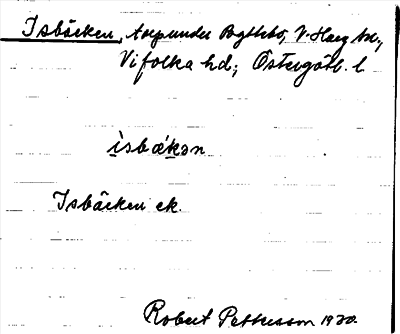 Isbäcken, torp under Bogstebo, V. Harg sn;
Vifolka hd; Östergötl. l
ìsbǽkən
Isbäcken ek.
Robert Pettersson 1930.